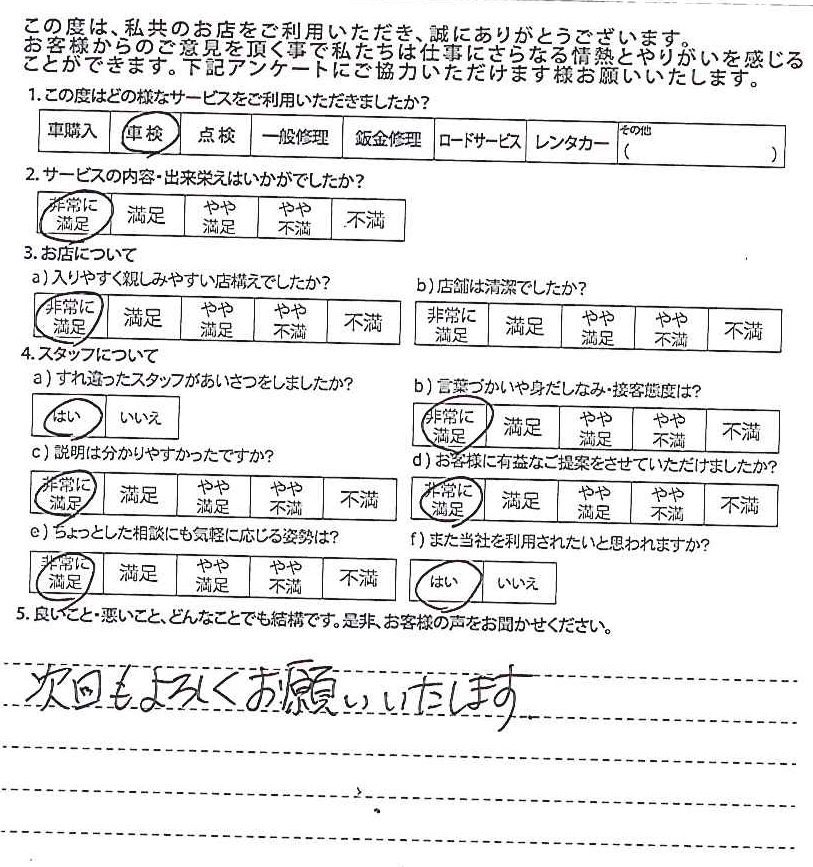 この度は、私共のお店をご利用いただき、誠にありがとうございます。
お客様からのご意見を頂く事で私たちは仕事にさらなる情熱とやりがいを感じる
ことができます。下記アンケートにご協力いただけます様お願いいたします。
1.この度はどの様なサービスをご利用いただきましたか?
車購入 車検 点検 一般修理 鈑金修理 ロードサービス レンタカー その他 ( )
2.サービスの内容・出来栄えはいかがでしたか?
非常に満足 満足 やや満足 やや不満 不満
3.お店について
a)入りやすく親しみやすい店構えでしたか? b)店舗は清潔でしたか?
非常に満足 満足 やや満足 やや不満 不満 非常に満足 満足 やや満足 やや不満 不満
4.スタッフについて
a)すれ違ったスタッフがあいさつをしましたか? b)言葉づかいや身だしなみ・接客態度は?
はい いいえ 非常に満足 満足 やや満足 やや不満 不満
c)説明は分かりやすかったですか? d)お客様に有益なご提案をさせていただけましたか?
非常に満足 満足 やや満足 やや不満 不満 非常に満足 満足 やや満足 やや不満 不満
e)ちょっとした相談にも気軽に応じる姿勢は? f)また当社を利用されたいと思われますか?
非常に満足 満足 やや満足 やや不満 不満 はい いいえ
5.良いこと・悪いこと、どんなことでも結構です。是非、お客様の声をお聞かせください。
次回もよろしくお願いいたします.